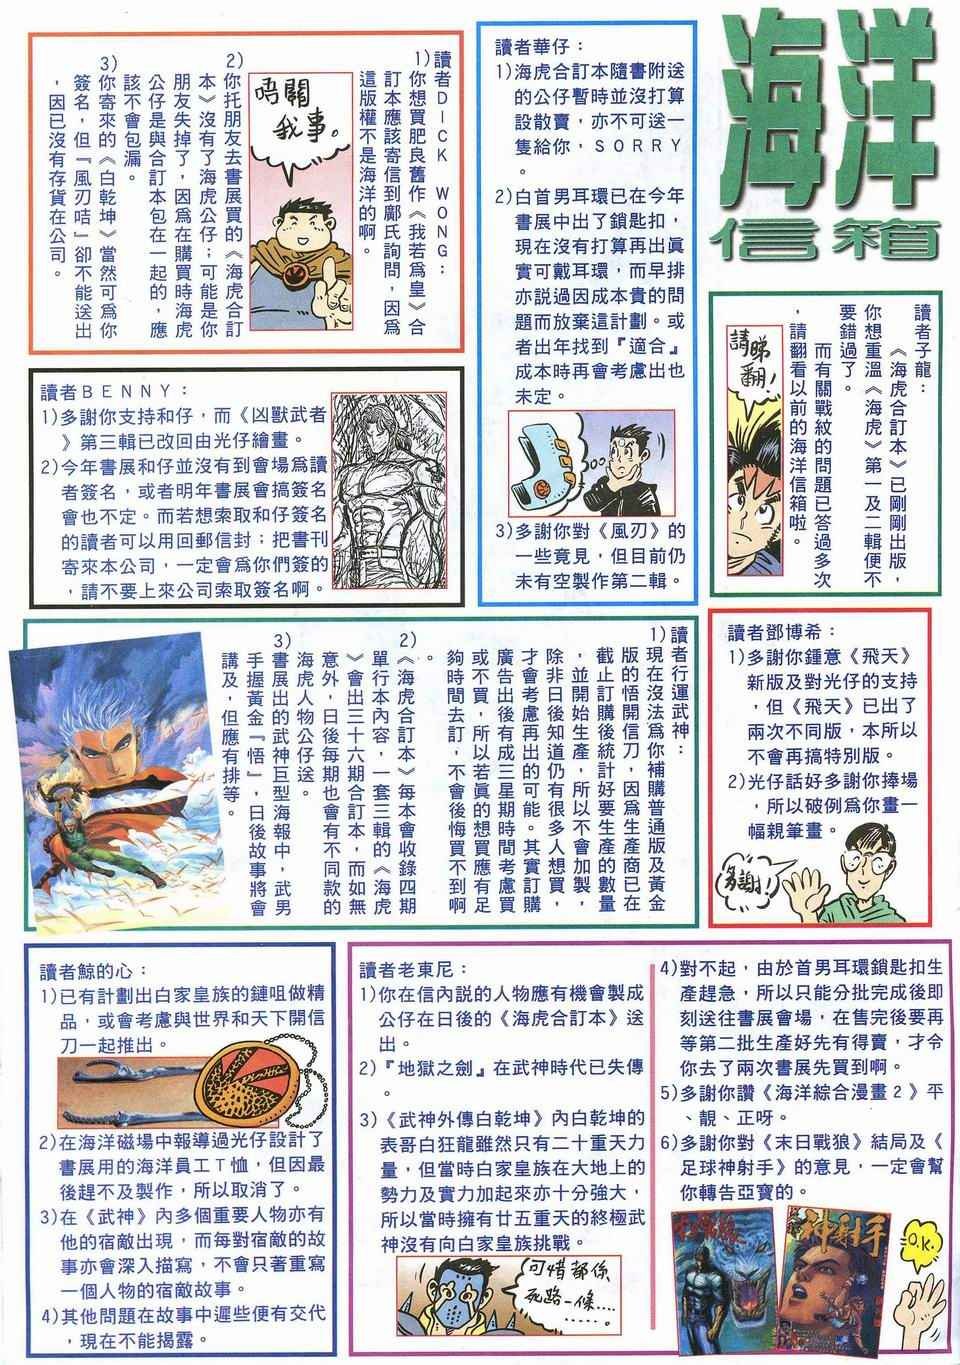 海洋
信箱
讀者DICK WONG:
1)你想買肥良舊作《我若爲皇》合
訂本應該寄信到鄺氏詢問,因爲
這版權不是海洋的啊。
唔關
我事。
2)你托朋友去書展買的《海虎合訂
本》沒有了海虎公仔;可能是你
朋友失掉了,因爲在購買時海虎
公仔是與合訂本包在一起的,應
該不會包漏。
3)你寄來的《白乾坤》當然可爲你
簽名,但『風刃咭』卻不能送出
,因已沒有存貨在公司。
讀者華仔:
1)海虎合訂本隨書附送
的公仔暫時並沒打算
設散賣,亦不可送一
隻給你,SORRY
。
2)白首男耳環已在今年
書展中出了鎖匙扣,
現在沒有打算再出眞
實可戴耳環,而早排
亦説過因成本貴的問
題而放棄這計劃。或
者出年找到『適合』
成本時再會考慮出也
未定。
3)多謝你對《風刃》的
一些竟見,但目前仍
未有空製作第二輯。
讀者子龍:
《海虎合訂本》已剛剛出版,
你想重溫《海虎》第一及二輯便不
要錯過了。
而有關戰紋的問題已答過多次
,請翻看以前的海洋信箱啦。
請睇
翻!
讀者BENNY:
1)多謝你支持和仔,而《凶獸武者
》第三輯已改回由光仔繪畫。
2)今年書展和仔並沒有到會場爲讀
者簽名,或者明年書展會搞簽名
會也不定。而若想索取和仔簽名
的讀者可以用回郵信封;把書刊
寄來本公司,一定會爲你們簽的
,請不要上來公司索取簽名啊。
讀者行運武神:
1)現在沒法爲你補購普通版及黃金
版的悟開信刀,因爲生產商已在
截止訂購後統計好要生產的數量
,並開始生產,所以不會加製,
除非日後知道仍有很多人想買,
才會考慮再出的可能。其實訂購
廣告出後有成三星期時間考慮買
或不買,所以若眞的想買應有足
夠時間去訂,不會後悔買不到啊
。
2)《海虎合訂本》每本會收錄四期
單行本內容,一套三輯的《海虎
》會出三十六期合訂本,而如無
意外,日後每期也會有不同款的
海虎人物公仔送。
3)書展出的武神巨型海報中,武男
手握黃金『悟』,日後故事將會
講及,但應有排等。
讀者鄧博希:
1)多謝你鍾意《飛天》
新版及對光仔的支持
,但《飛天》已出了
兩次不同版,本所以
不會再搞特別版。
2)光仔話好多謝你捧場
,所以破例爲你畫一
幅親筆畫。
多謝!
讀者鯨的心:
1)已有計劃出白家皇族的鏈咀做精
品,或會考慮與世界和天下開信
刀一起推出。
2)在海洋磁場中報導過光仔設計了
書展用的海洋員工T恤,但因最
後趕不及製作,所以取消了。
3)在《武神》內多個重要人物亦有
他的宿敵出現,而每對宿敵的故
事亦會深入描寫,不會只著重寫
一個人物的宿敵故事。
4)其他問題在故事中遲些便有交代
,現在不能揭露。
讀者老東尼:
1)你在信內説的人物應有機會製成
公仔在日後的《海虎合訂本》送
出。
2)『地獄之劍』在武神時代已失傳
。
3)《武神外傳白乾坤》內白乾坤的
表哥白狂龍雖然只有二十重天力
量,但當時白家皇族在大地上的
勢力及實力加起來亦十分強大,
所以當時擁有廿五重天的終極武
神沒有向白家皇族挑戰。
可惜都係
死路一條……
4)對不起,由於首男耳環鎖匙扣生
產趕急,所以只能分批完成後即
刻送往書展會場,在售完後要再
等第二批生產好先有得賣,才令
你去了兩次書展先買到啊。
5)多謝你讚《海洋綜合漫畫2》平
、靚、正呀。
6)多謝你對《末日戰狼》結局及《
足球神射手》的意見,一定會幫
你轉告亞寶的。
神射手
O.K.